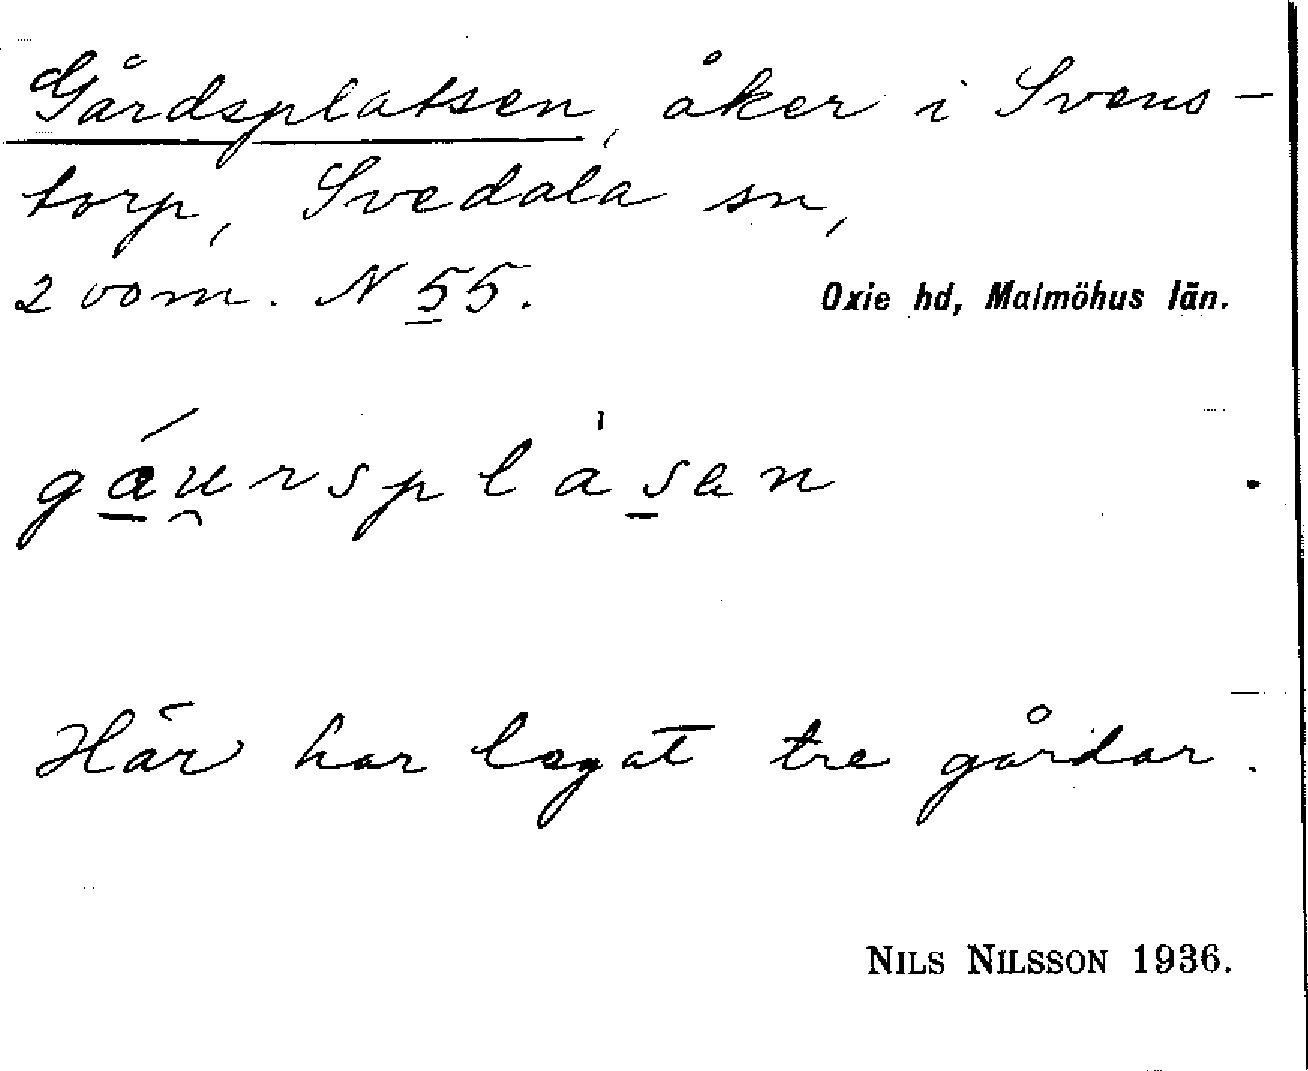 Gårdsplatsen, åker i Svens-
torp, Svedala sn,
2 vom. N 55.
Oxie hd, Malmöhus län.
gáu̯rsplàsen
Här har legat tre gårdar.
NILS NILSSON 1936.